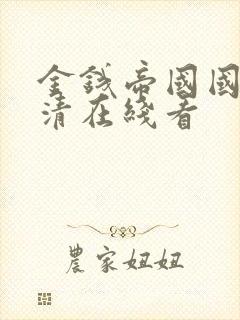 金錢帝國國
清在綫看
農家妞妞